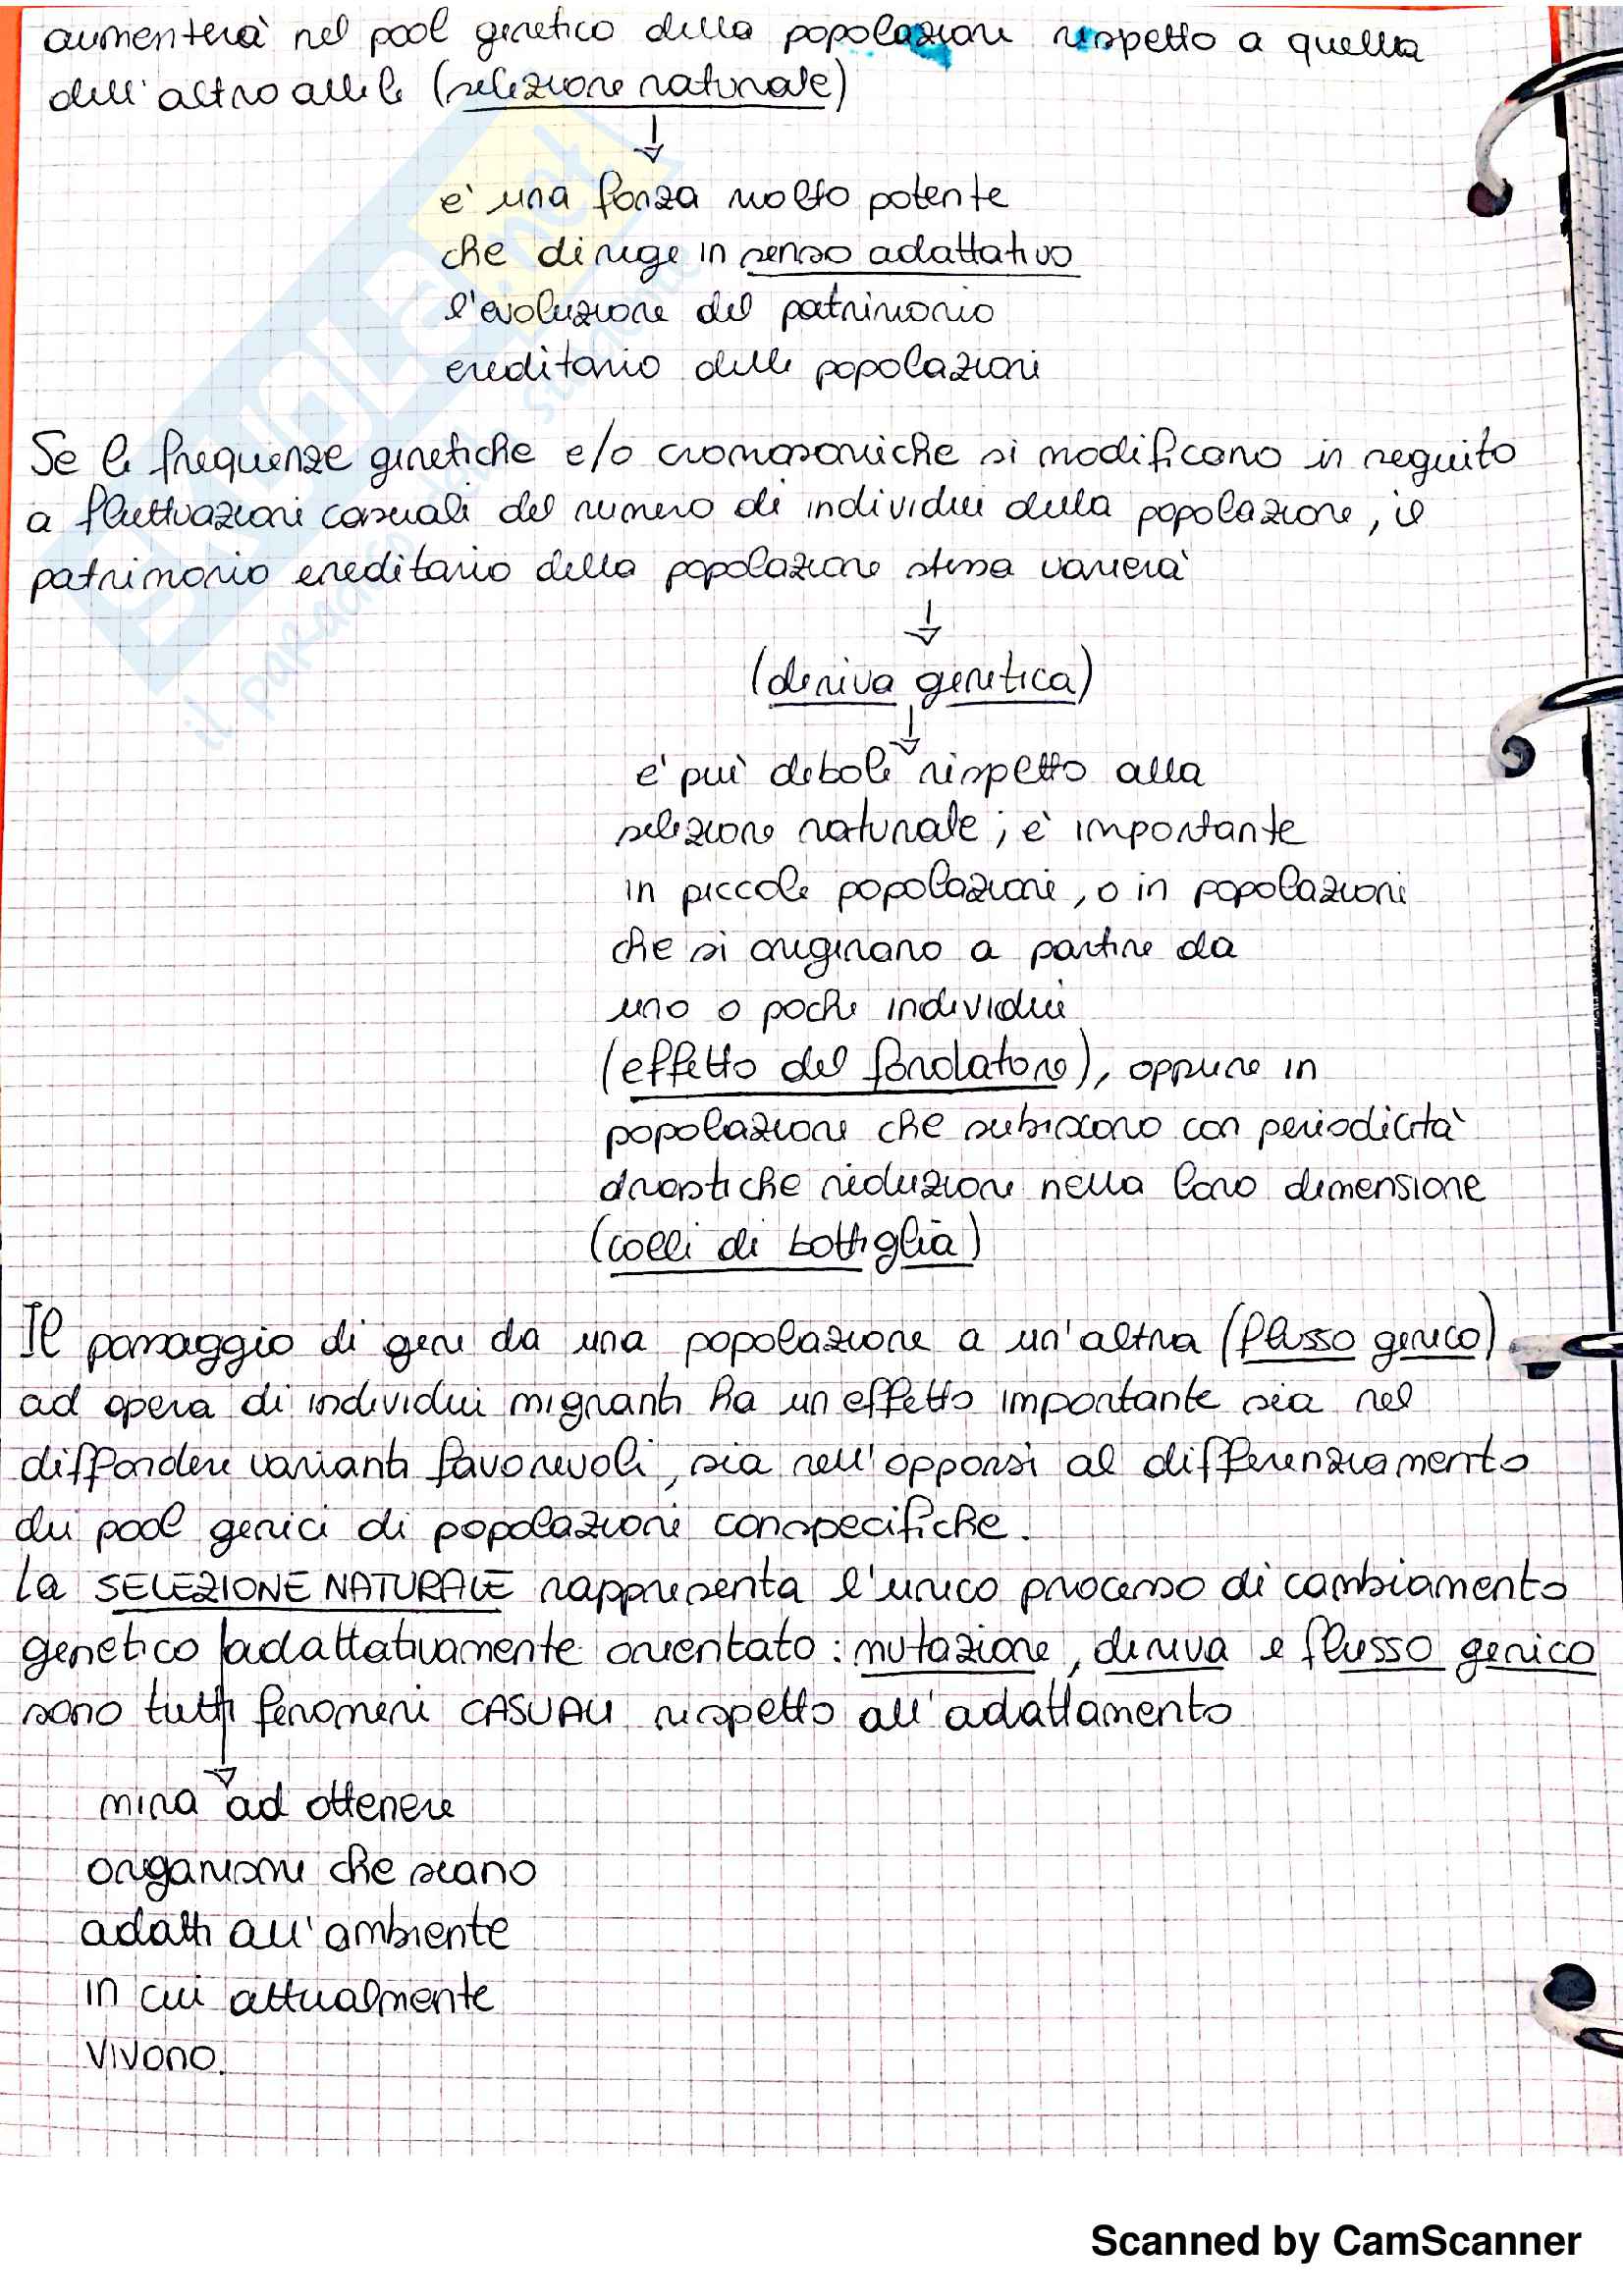 aumenterà nel pool genetico della popolazione rispetto a quella
dell'altro allele (selezione naturale)
è una forza molto potente
che dirige in senso adattativo
l'evoluzione del patrimonio
ereditario delle popolazioni
Se le frequenze genetiche e/o cromosomiche si modificano in seguito
a fluttuazioni casuali del numero di individui della popolazione, il
patrimonio ereditario della popolazione stessa varierà
(deriva genetica)
è più debole rispetto alla
selezione naturale; è importante
in piccole popolazioni, o in popolazioni
che si originano a partire da
uno o pochi individui
(effetto del fondatore), oppure in
popolazione che subiscono con periodicità
drastiche riduzioni nella loro dimensione
(colli di bottiglia)
Il passaggio di geni da una popolazione a un'altra (flusso genico)
ad opera di individui migranti ha un effetto importante sia nel
diffondere varianti favorevoli, sia nell'opporsi al differenziamento
dei pool genici di popolazioni conspecifiche.
La SELEZIONE NATURALE rappresenta l'unico processo di cambiamento
genetico adattativamente orientato: mutazione, deriva e flusso genico
sono tutti fenomeni CASUALI rispetto all'adattamento
mira ad ottenere
organismi che siano
adatti all'ambiente
in cui attualmente
vivono.
Scanned by CamScanner